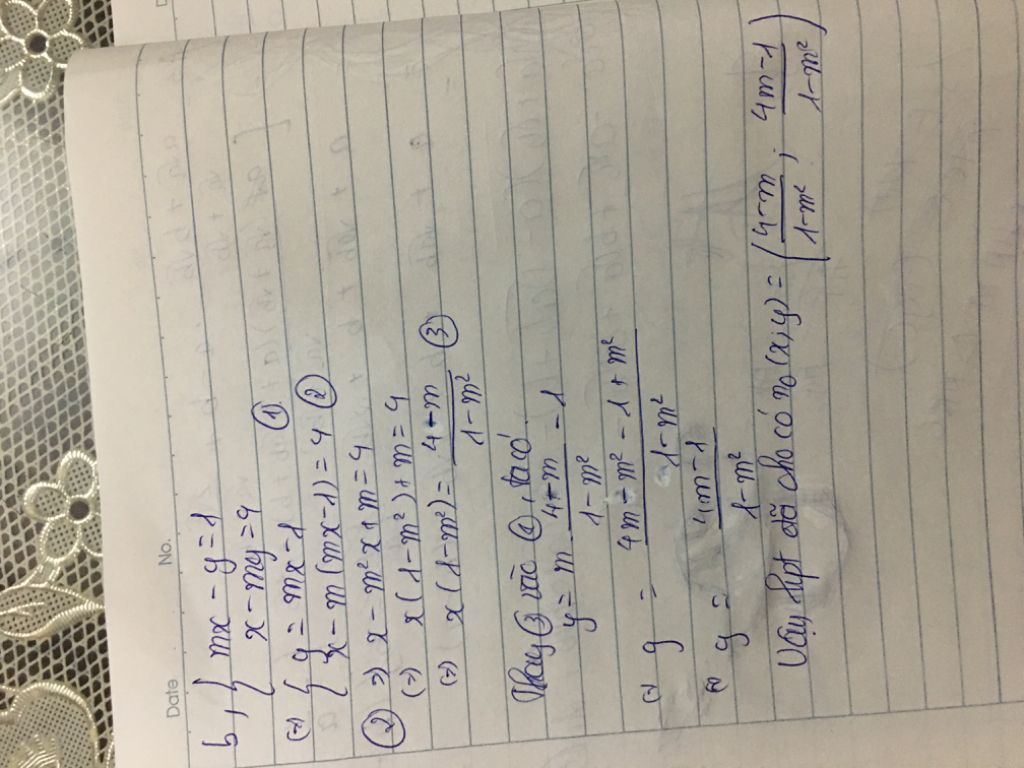 Date No.
b, { mx - y = 1
x - my = 4
(=) { y = mx - 1 ①
x - m(mx - 1) = 4 ②
② => x - m²x + m = 4
(=) x(1 - m²) + m = 4
(=) x(1 - m²) = 4 - m / 1 - m² ③
Thay ③ vào ①, ta có
y = m 4 - m / 1 - m² - 1
(=) y = 4m - m² - 1 + m² / 1 - m²
(=) y = 4m - 1 / 1 - m²
Vậy hpt đã cho có n₀ (x; y) = (4 - m / 1 - m² ; 4m - 1 / 1 - m²)